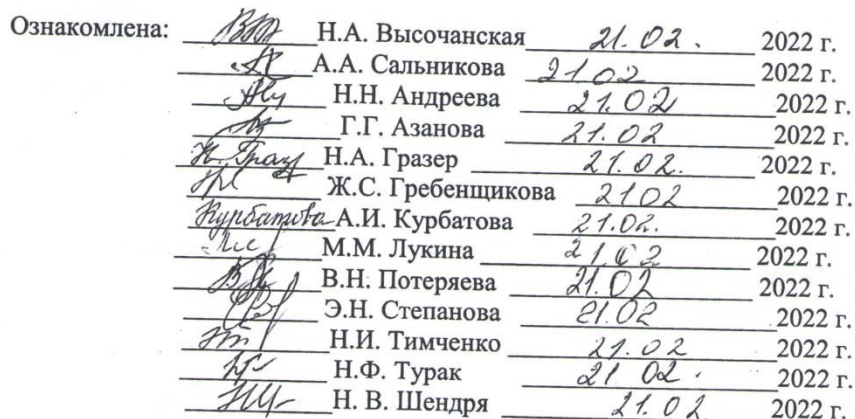 Ознакомлена: Н.А. Высочанская 21.02. 2022 г.
А.А. Сальникова 21.02 2022 г.
Н.Н. Андреева 21.02 2022 г.
Г.Г. Азанова 21.02 2022 г.
Н.А. Гразер 21.02. 2022 г.
Ж.С. Гребенщикова 21.02 2022 г.
Курбатова А.И. Курбатова 21.02. 2022 г.
М.М. Лукина 21.02 2022 г.
В.Н. Потеряева 21.02 2022 г.
Э.Н. Степанова 21.02 2022 г.
Н.И. Тимченко 21.02 2022 г.
Н.Ф. Турак 21.02. 2022 г.
Н. В. Шендря 21.02 2022 г.